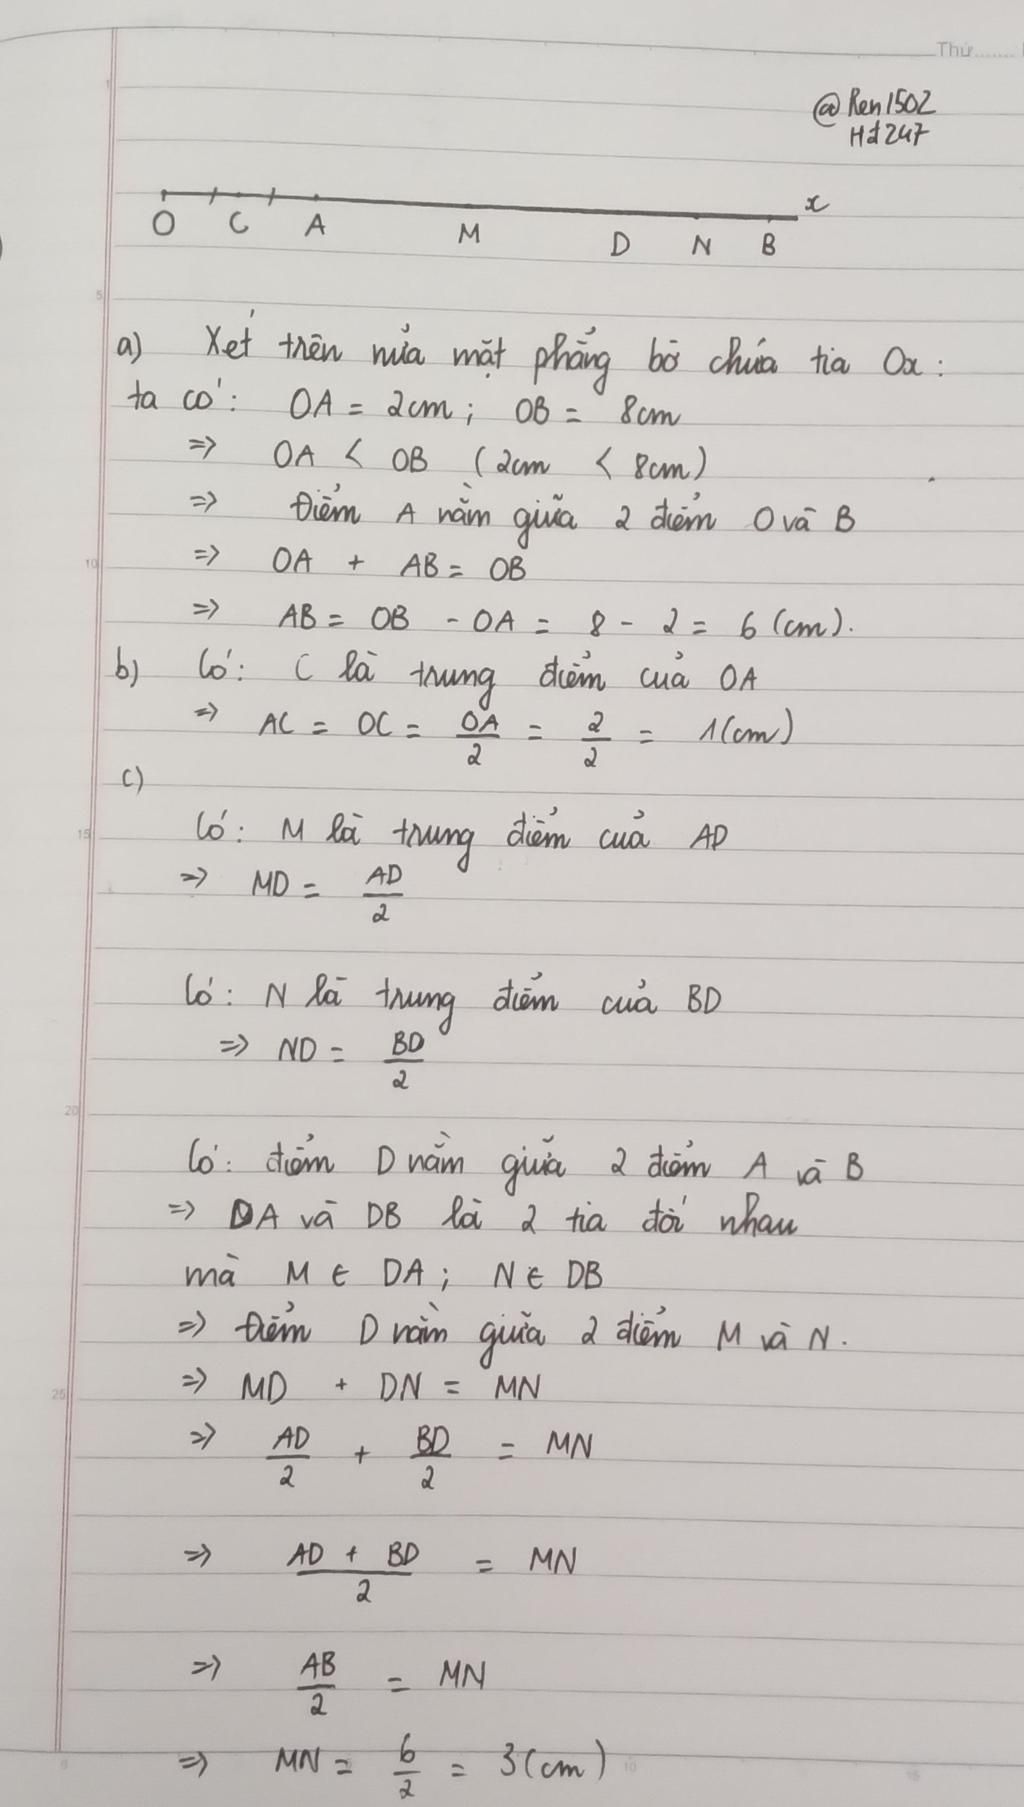 Thứ.......
@Ren1502
Hđ247
O C A M D N B x
a) Xét trên nửa mặt phẳng bờ chứa tia Ox:
ta có: OA = 2cm; OB = 8cm
=> OA < OB (2cm < 8cm)
=> Điểm A nằm giữa 2 điểm O và B
=> OA + AB = OB
=> AB = OB - OA = 8 - 2 = 6 (cm).
b) Có: C là trung điểm của OA
=> AC = OC = OA/2 = 2/2 = 1(cm)
c)
Có: M là trung điểm của AD
=> MD = AD/2
Có: N là trung điểm của BD
=> ND = BD/2
Có: điểm D nằm giữa 2 điểm A và B
=> DA và DB là 2 tia đối nhau
mà M ∈ DA; N ∈ DB
=> Điểm D nằm giữa 2 điểm M và N.
=> MD + DN = MN
=> AD/2 + BD/2 = MN
=> (AD + BD)/2 = MN
=> AB/2 = MN
=> MN = 6/2 = 3(cm)